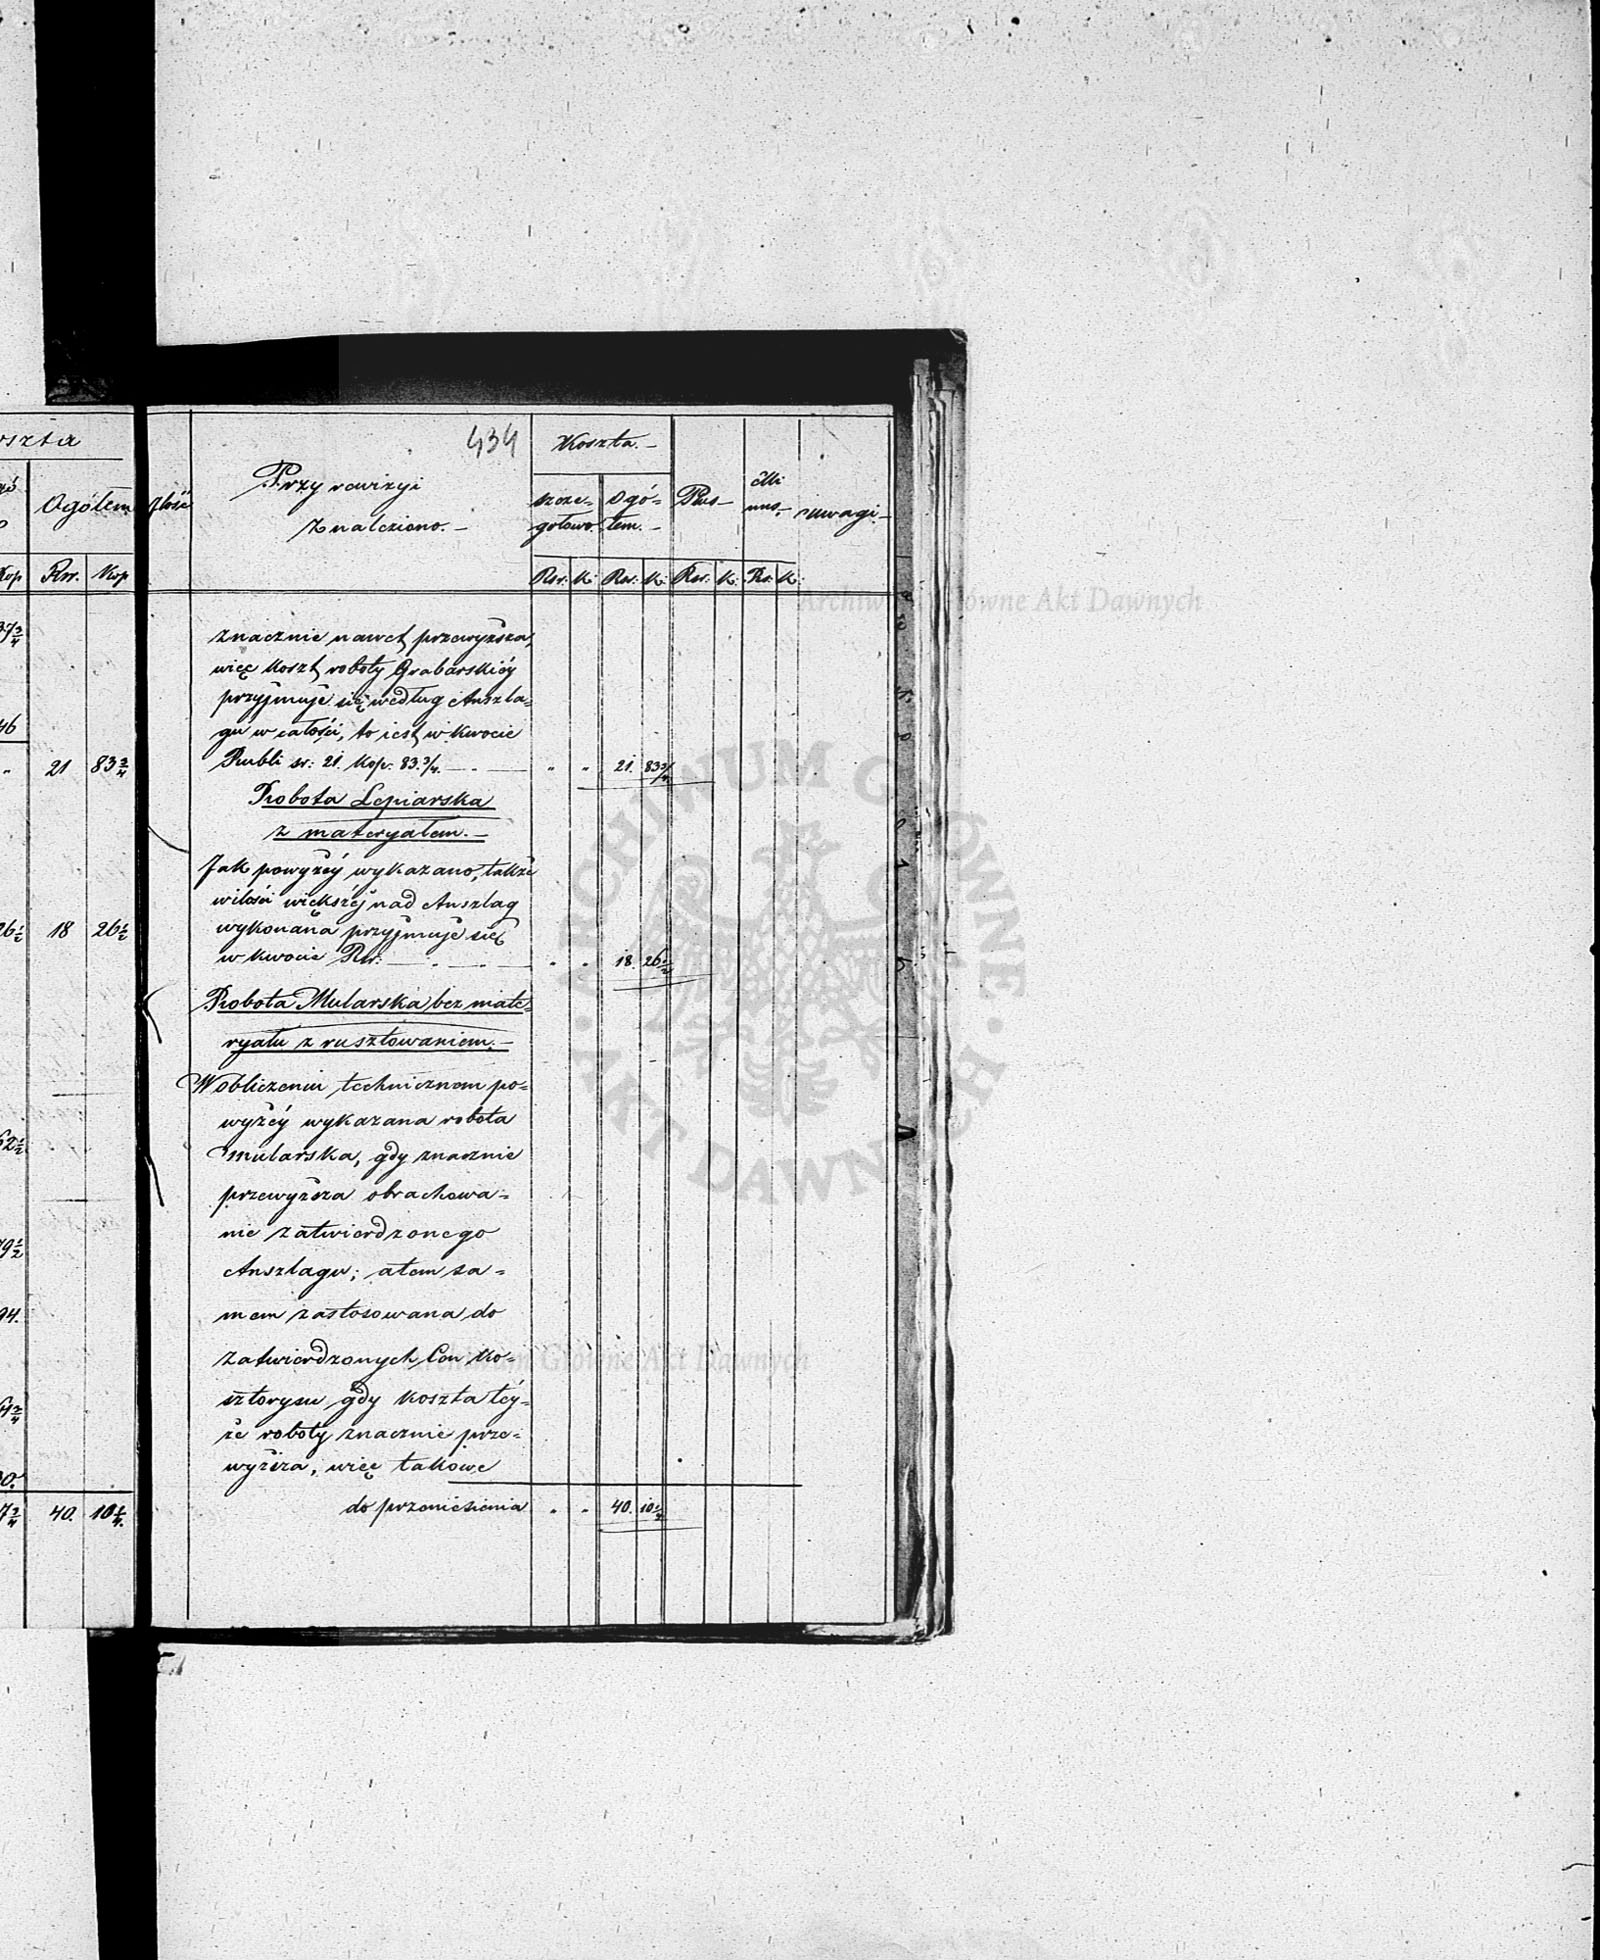 434
Koszta
Ogółem
Kop
Rsr.
Kop
46
21
83 3/4
26 1/2
18
26 1/2
62 1/2
79 1/2
94.
40.
10 1/4.
Ilość
Przy rewizyi
Znaleziono.—
Koszta.—
szcze=
gołowo.
ogó=
łem.—
Plus—
Mi
nus.—
uwagi.—
Rsr. K. Rsr. K. Rsr. K. Rs. K.
znacznie nawet przewyższa,
więc koszt roboty Grabarskiéy
przyjmuje się według Anszla=
gu w całości, to iest w kwocie
Rubli sr: 21. Kop: 83.3/4. — . — „ „ 21. 83 3/4
Robota Lepiarska
z materyałem.—
Jak powyżéy wykazano, także
w ilości większéj nad Anszlag
wykonana przyjmuje się
w kwocie Rsr. — . — . — „ „ 18. 26 1/2
Robota Mularska bez mate=
ryału z rusztowaniem.—
W obliczeniu technicznem po=
wyżéy wykazana robota
mularska, gdy znacznie
przewyższa obrachowa=
nie zatwierdzonego
Anszlagu; atem sa=
mem zastosowana do
zatwierdzonych Cen Ko=
sztorysu gdy koszta téy=
że roboty znacznie prze=
wyższa, więc takowe
do przeniesienia „ „ 40. 10 1/4
Archiwum Główne Akt Dawnych
ARCHIWUM GŁÓWNE
AKT DAWNYCH
Archiwum Główne Akt Dawnych